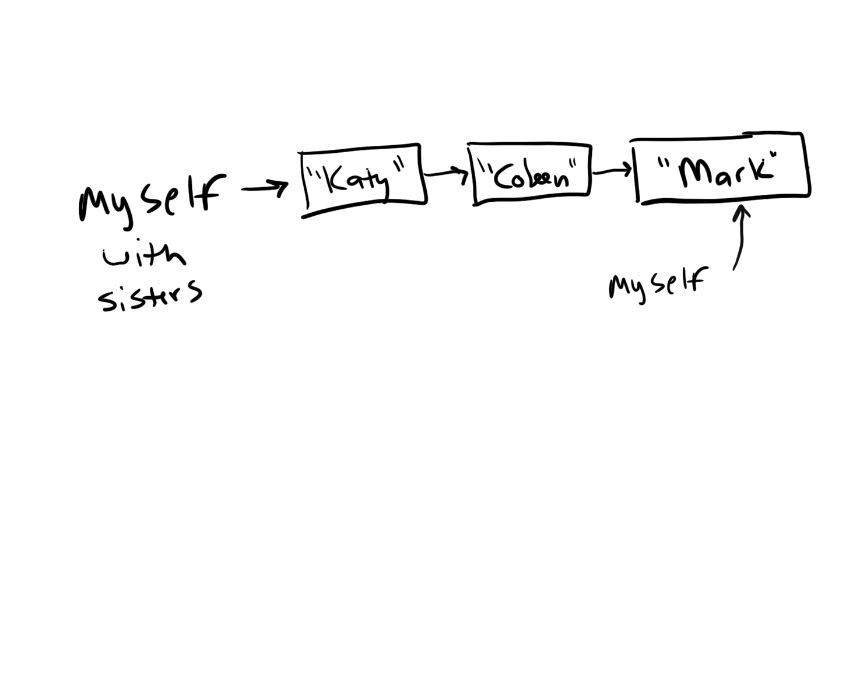 Myself
with
sisters
"Katy"
"Coleen"
"Mark"
Myself